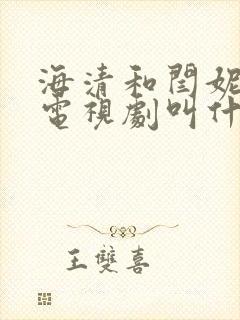 海清和閆妮
電視劇叫什
王雙喜